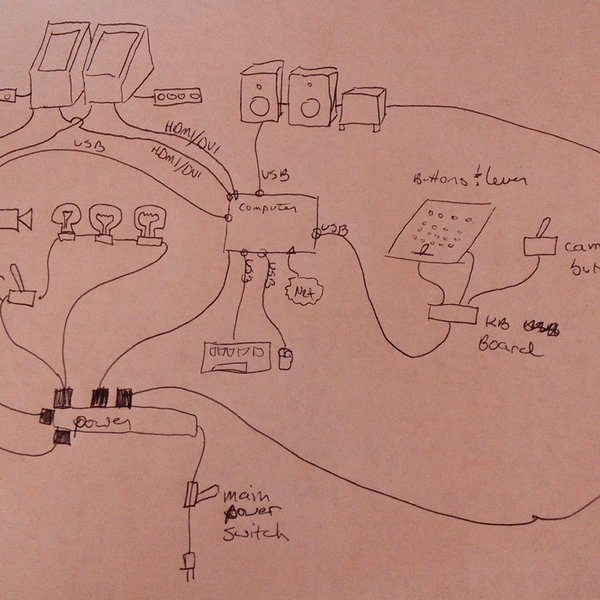 HDMI/DVI
HDMI/DVI
USB
USB
Computer
USB
USB
USB
Net
Buttons & lever
KB
Board
power
main
power
switch